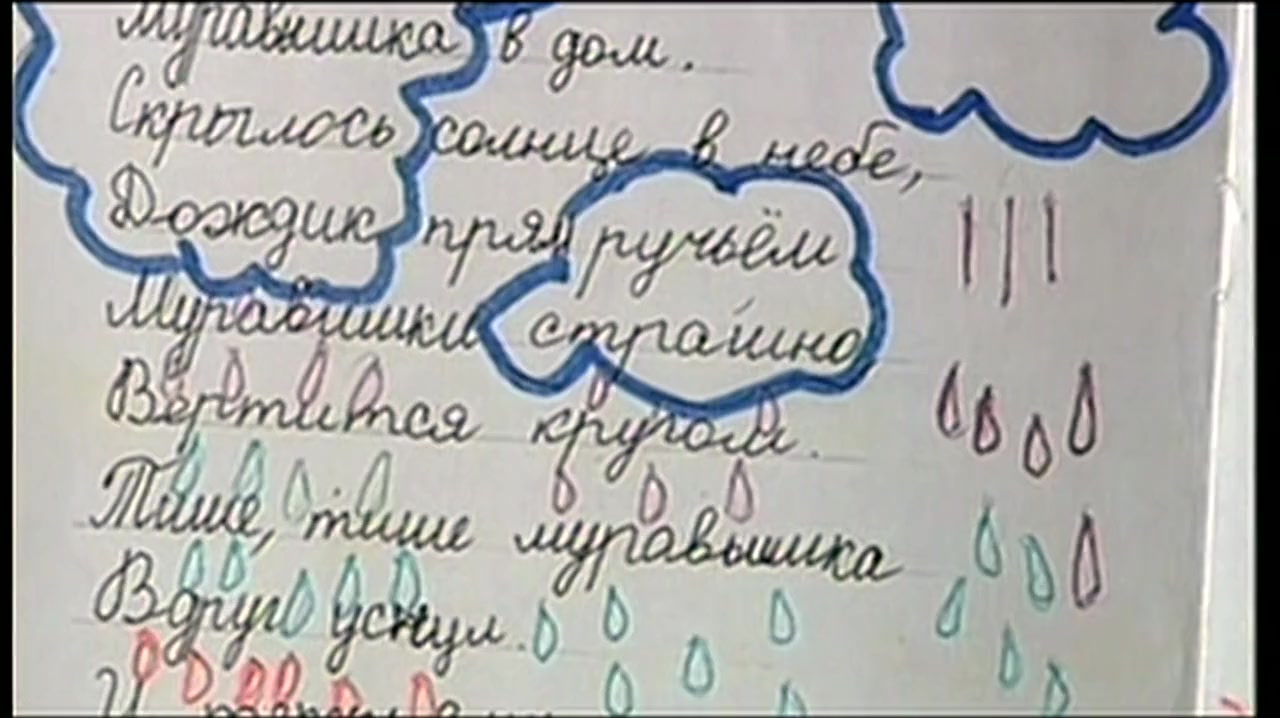 Муравьишка в дом.
Скрылось солнце в небе,
Дождик прям ручьём
Муравьишки страшно
Вертится кругом.
Тише, тише муравьишка
Вдруг уснул.
И